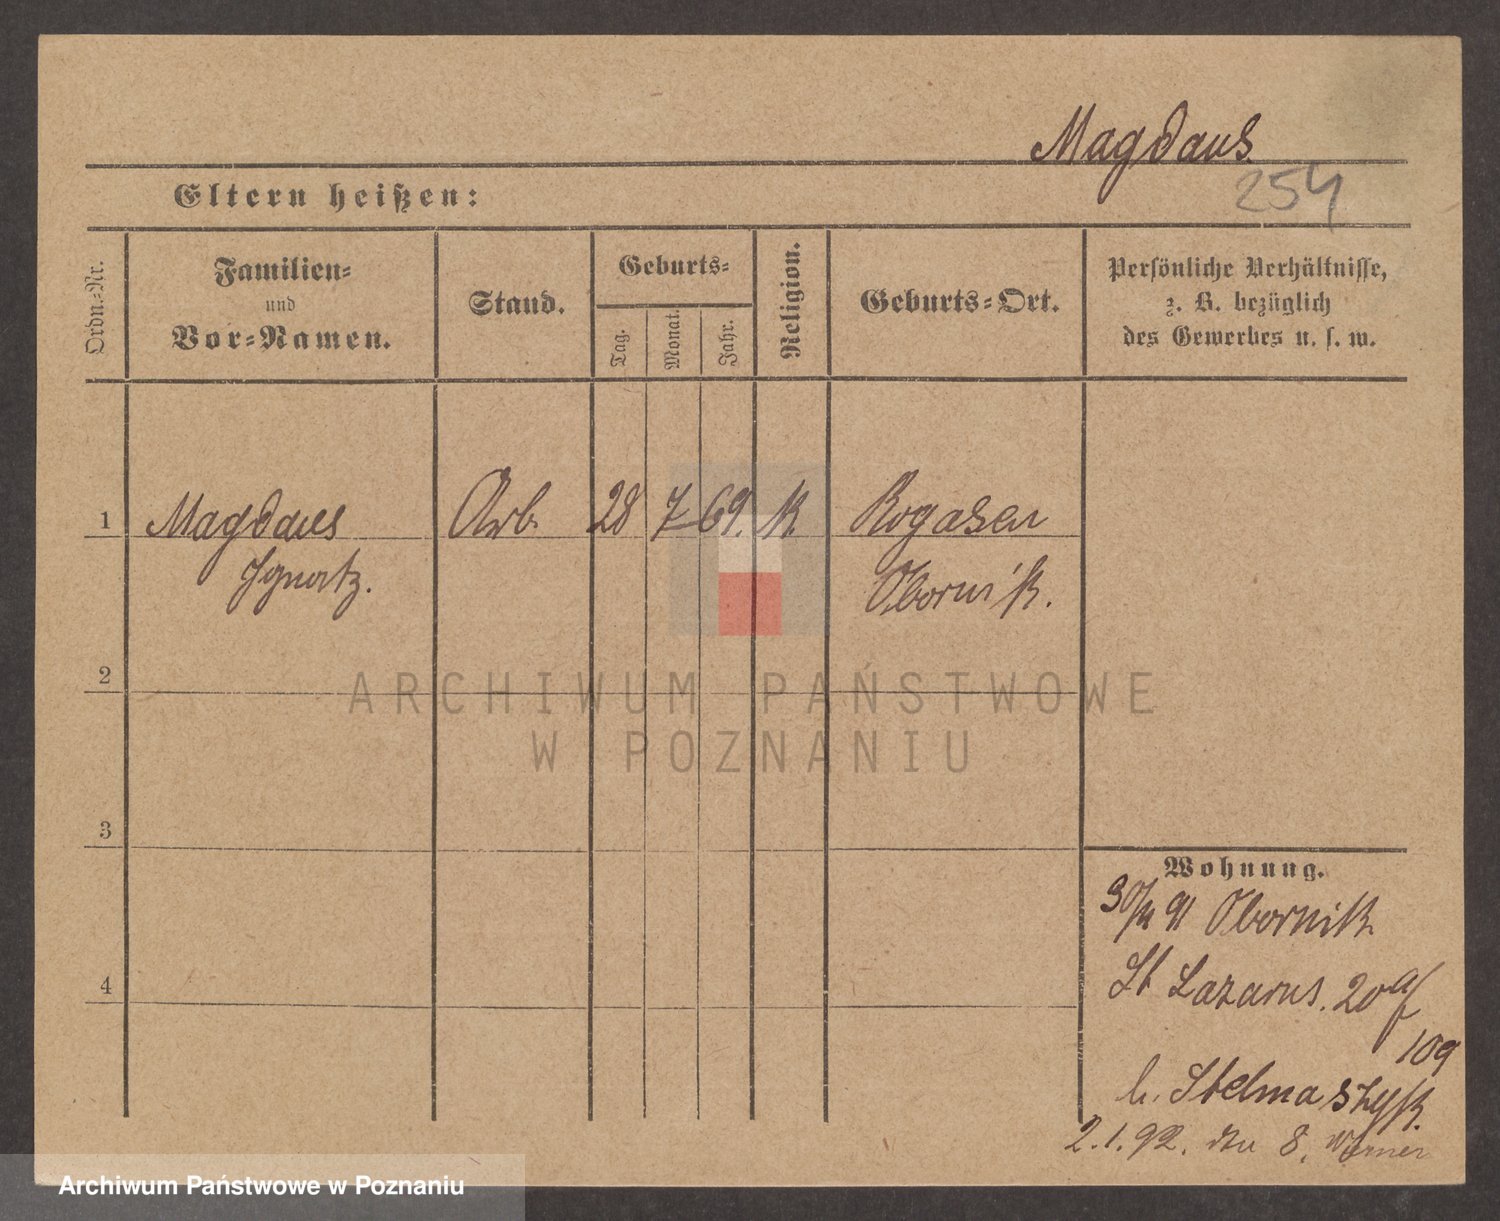 Magdaus
254
Eltern heißen:
Ordn.=Nr.
Familien=
und
Vor=Namen.
Stand.
Geburts=
Tag.
Monat.
Jahr.
Religion.
Geburts=Ort.
Persönliche Verhältnisse,
z. B. bezüglich
des Gewerbes u. s. w.
1 Magdaus Arb. 28 7 69. k. Rogasen
Ignatz. Obornik.
2
3
4
ARCHIWUM PAŃSTWOWE
W POZNANIU
Wohnung.
30/11 91 Obornik
St Lazarus. 20a/
109
b. Stelmaszyk.
2.1.92. 8.
Archiwum Państwowe w Poznaniu